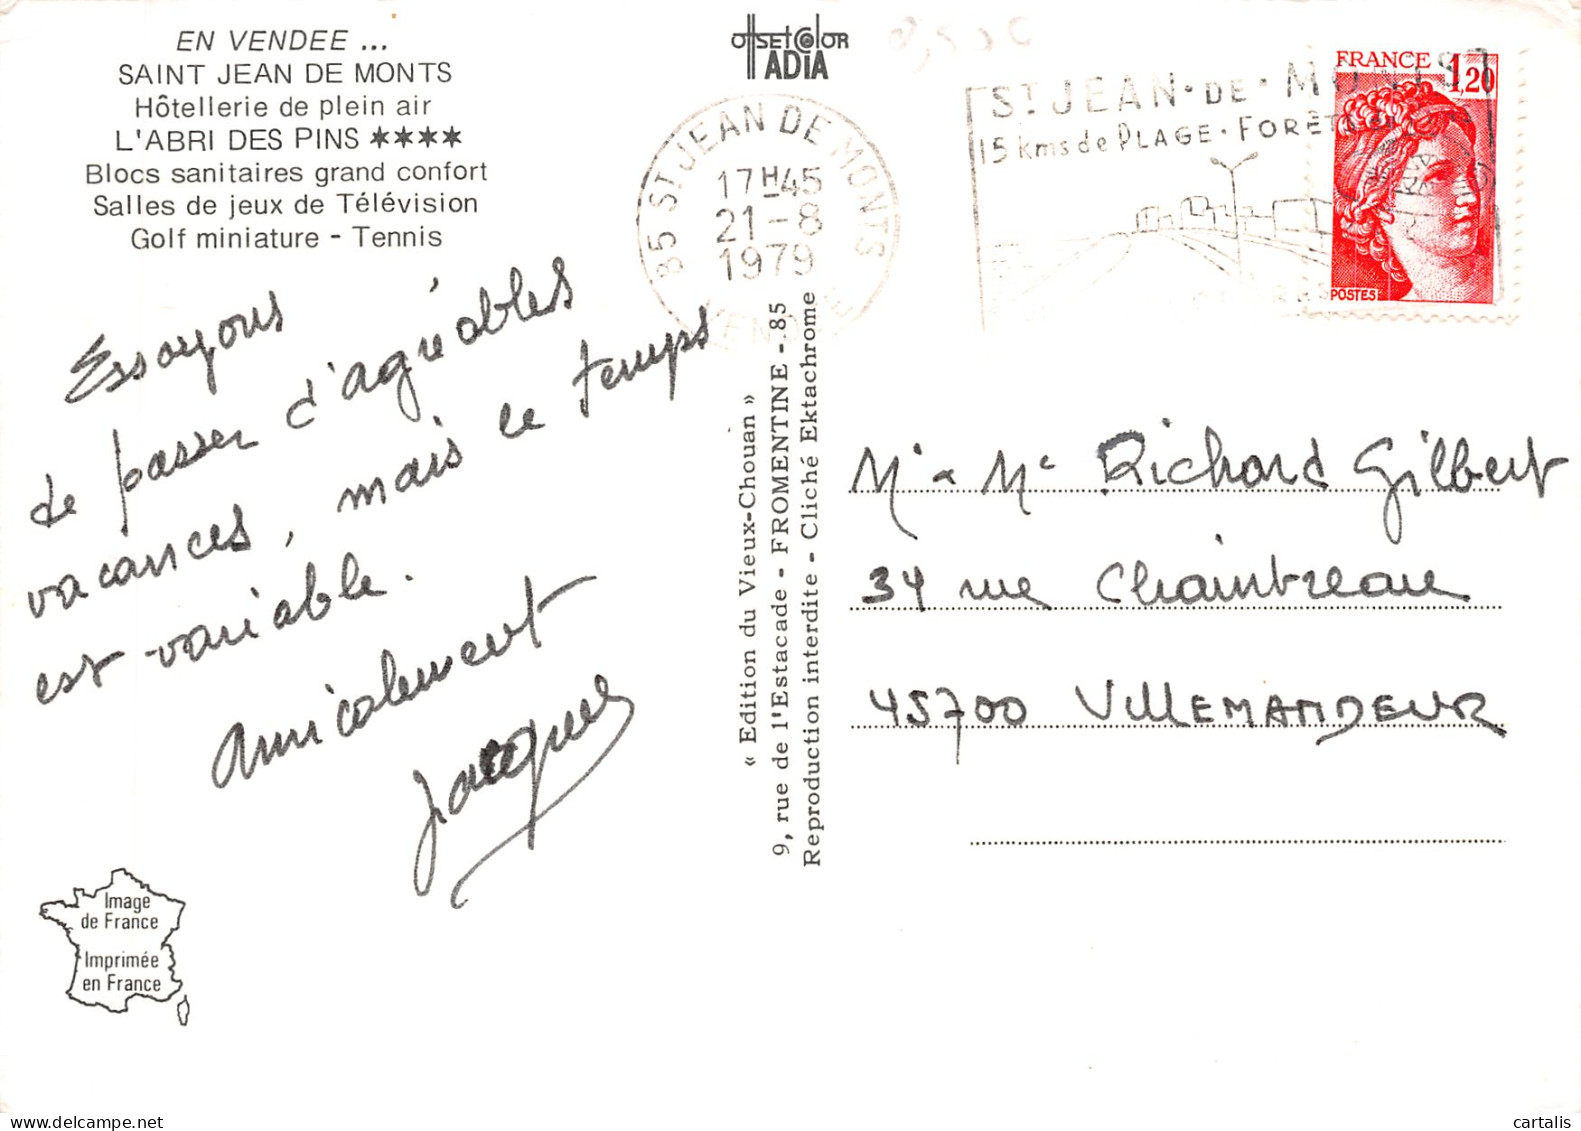 EN VENDEE ...
SAINT JEAN DE MONTS
Hôtellerie de plein air
L'ABRI DES PINS ★★★★
Blocs sanitaires grand confort
Salles de jeux de Télévision
Golf miniature - Tennis
Essayons
de passer d'agréables
vacances, mais le temps
est variable.
Amicalement
Jacques
Image
de France
Imprimée
en France
OffSEt COlOR
IADIA
85 ST JEAN DE MONTS
17H45
21-8
1979
VENDEE
ST JEAN-DE-MONTS
15 Kms de PLAGE - FORÊT
FRANCE 1,20
POSTES
« Edition du Vieux-Chouan »
9, rue de l'Estacade - FROMENTINE - 85
Reproduction interdite - Cliché Ektachrome
Mr & Me Richard Gilbert
34 rue Chaintreau
45700 VILLEMANDEUR
cartalis